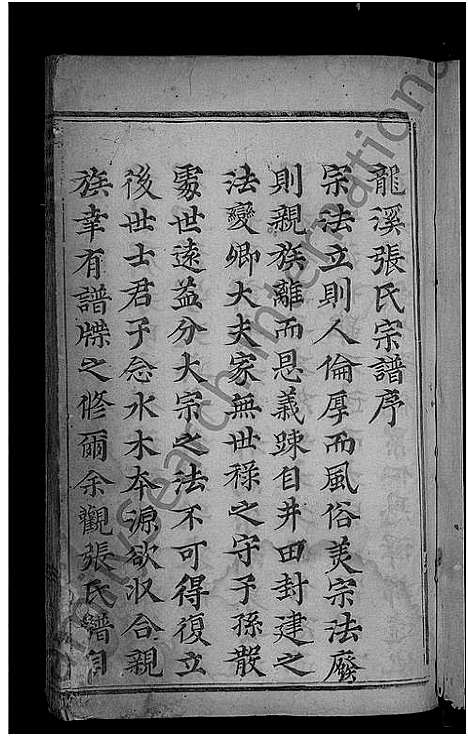 龍溪張氏宗譜序
宗法立則人倫厚而風俗美宗法廢
則親族離而恩義踈自井田封建之
法變卿大夫家無世祿之守子孫散
處世逺益分大宗之法不可得復立
後世士君子念水木本源欲収合親
族幸有譜牒之修爾余觀張氏譜自